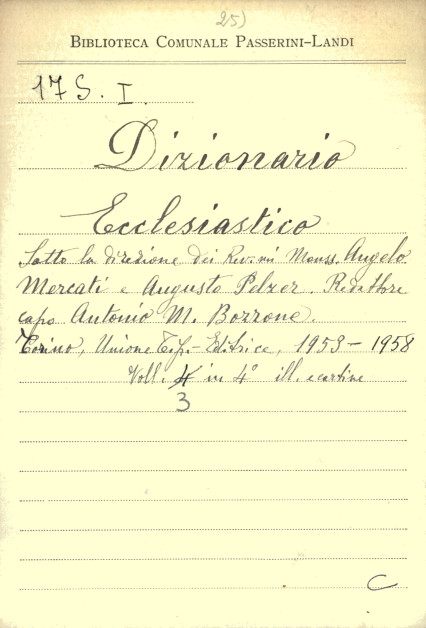 25)
BIBLIOTECA COMUNALE PASSERINI-LANDI
17 S. I.
Dizionario
Ecclesiastico
Sotto la direzione dei Rev.mi Monss. Angelo
Mercati e Augusto Pelzer. Redattore
capo Antonio M. Bozzone.
Torino, Unione Tip.-Editrice, 1953-1958
Voll. 4 in 4° ill. e cartine
3
C